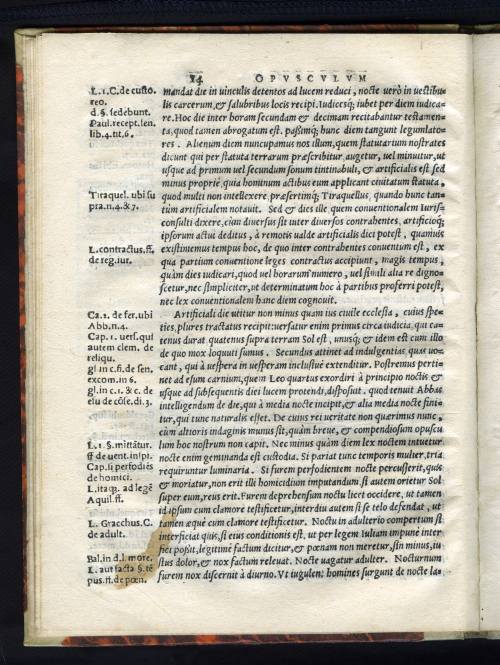 84 OPVSCVLVM
L. 1. C. de custo.
reo.
d. §. sedebunt.
Paul. recept. sen.
lib. 4. tit. 6.
Tiraquel. ubi su
pra. n. 4. & 7.
L. contractus. ff.
de reg. iur.
Ca. 1. de fer. ubi
Abb. n. 4.
Cap. 1. uers. qui
autem clem. de
reliqu.
gl. in c. fi. de sen.
excom. in 6.
gl. in c. 1. & c. de
elu de cōse. di. 3.
L. 1. §. mittātur.
ff de uent. inspi.
Cap. si perfodiēs
de homici.
L. itaq; ad legē
Aquil. ff.
L. Gracchus. C.
de adult.
Bal. in d. l. more.
L. aut facta §. tē
pus. ff. de pœn.
mandat die in uinculis detentos ad lucem reduci, nocte uerò in uestibu
lis carcerum, & salubribus locis recipi. Iudicesq; iubet per diem iudica=
re. Hoc die inter horam secundam & decimam recitabantur testamen=
ta, quod tamen abrogatum est. passimq; hunc diem tangunt legumlato=
res. Alienum diem nuncupamus nos illum, quem statutarium nostrates
dicunt qui per statuta terrarum præscribitur, augetur, uel minuitur, ut
usque ad primum uel secundum sonum tintinabuli, & artificialis est sed
minus proprie, quia hominum actibus eum applicant ciuitatum statuta,
quod multi non intellexere, præsertimq; Tiraquellus, quando hunc tan=
tùm artificialem notauit. Sed & dies ille, quem conuentionalem Iuris=
consulti dixere, cùm diuersus sit inter diuersos contrahentes, artificioq;
ipsorum actui deditus, à remotis ualde artificialis dici potest, quamuis
existimemus tempus hoc, de quo inter contrahentes conuentum est, ex
qua partium conuentione leges contractus accipiunt, magis tempus,
quàm dies iudicari, quod uel horarum numero, uel simili alia re digno=
scetur, nec simpliciter, ut determinatum hoc à partibus proferri potest,
nec lex conuentionalem hanc diem cognouit.
Artificiali die utitur non minus quam ius ciuile ecclesia, cuius spe=
ties, plures tractatus recipit: uersatur enim primus circa iudicia, qui ca=
tenus durat quatenus supra terram Sol est, unusq; & idem est cum illo
de quo mox loquuti sumus. Secundus attinet ad indulgentias quas uo=
cant, qui à uespera in uesperam inclusiuè extenditur. Postremus perti=
net ad esum carnium, quem Leo quartus exordiri à principio noctis &
usque ad subsequentis diei lucem protendi, disposuit. quod tenuit Abbas
intelligendum de die, qui à media nocte incipit, & alia media nocte fini=
tur, qui tunc naturalis esset. De cuius rei ueritate non quærimus nunc,
cùm altioris indaginis munus sit, quàm breue, & compendiosum opuscu
lum hoc nostrum non capit. Nec minus quàm diem lex noctem intuetur
nocte enim geminanda est custodia. Si pariat tunc temporis mulier, tria
requiruntur luminaria. Si furem perfodientem nocte percusserit, quis
& moriatur, non erit illi homicidium imputandum. si autem orietur Sol
super eum, reus erit. Furem deprehensum noctu licet occidere, ut tamen
id ipsum cum clamore testificetur, interdiu autem si se telo defendat, ut
tamen æquè cum clamore testificetur. Noctu in adulterio compertum si
interficiat quis, si eius conditionis est, ut per legem Iuliam impunè inter
fici possit, legittimè factum dicitur, & pœnam non meretur, sin minus, iu
stus dolor, & nox factum releuat. Nocte uagatur adulter. Nocturnum
furem nox discernit à diurno. Vt iugulent homines surgunt de nocte la=